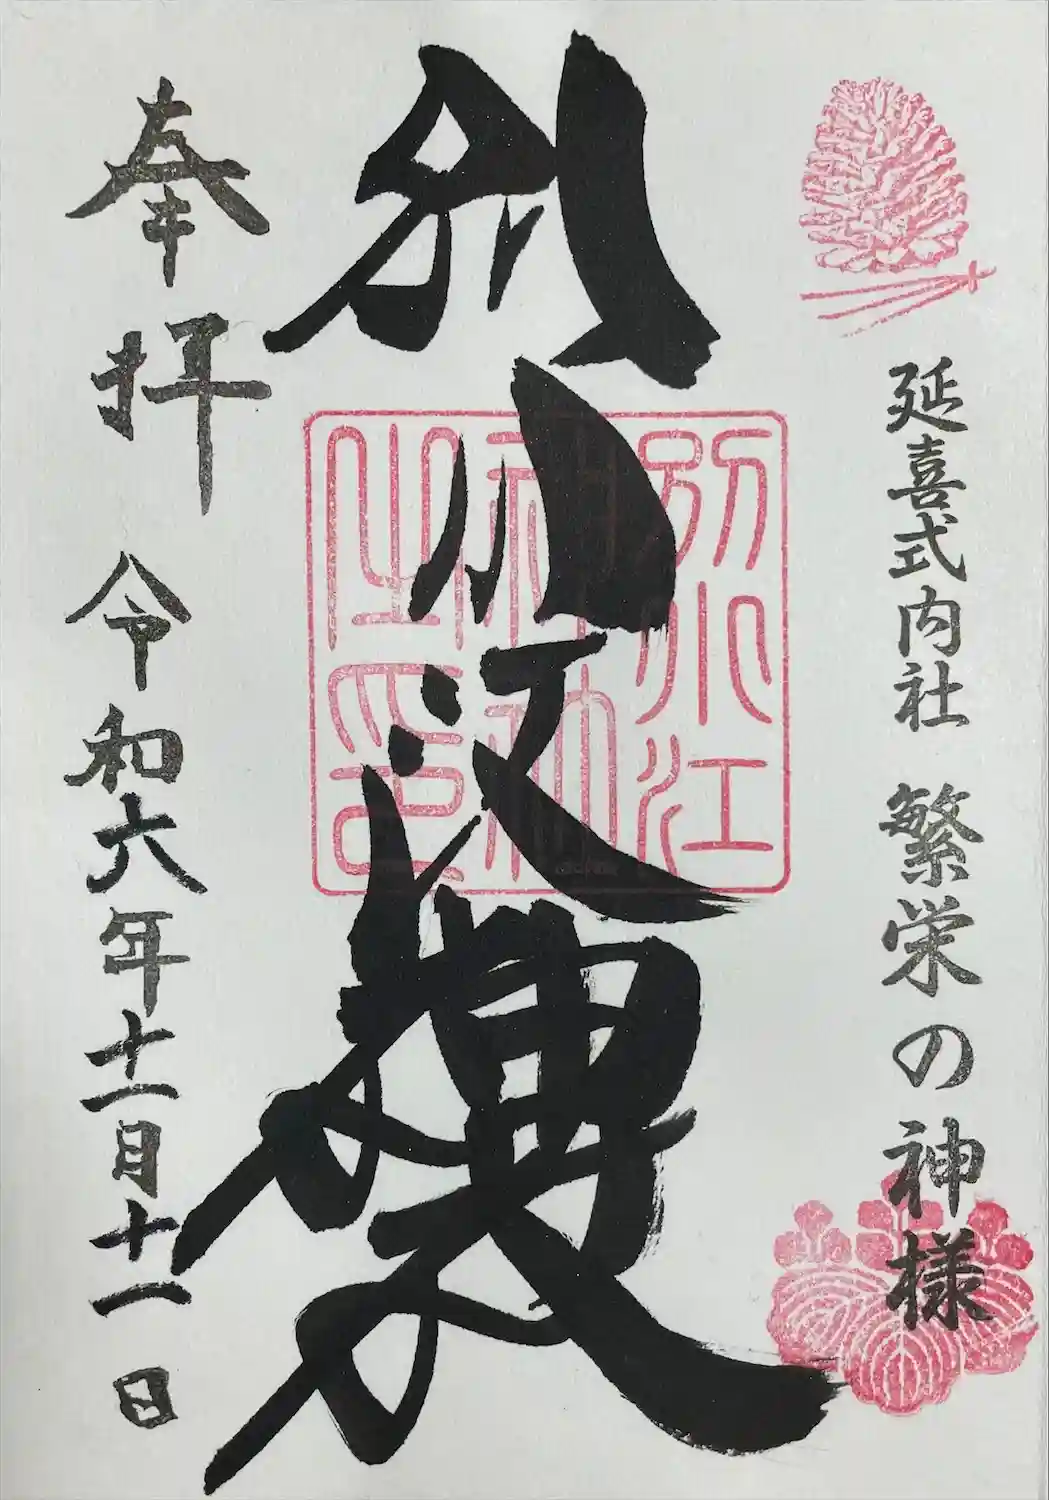 延喜式内社 繁栄の神様
別小江神社
別小江
神社
之印
奉拝 令和六年十一月十一日